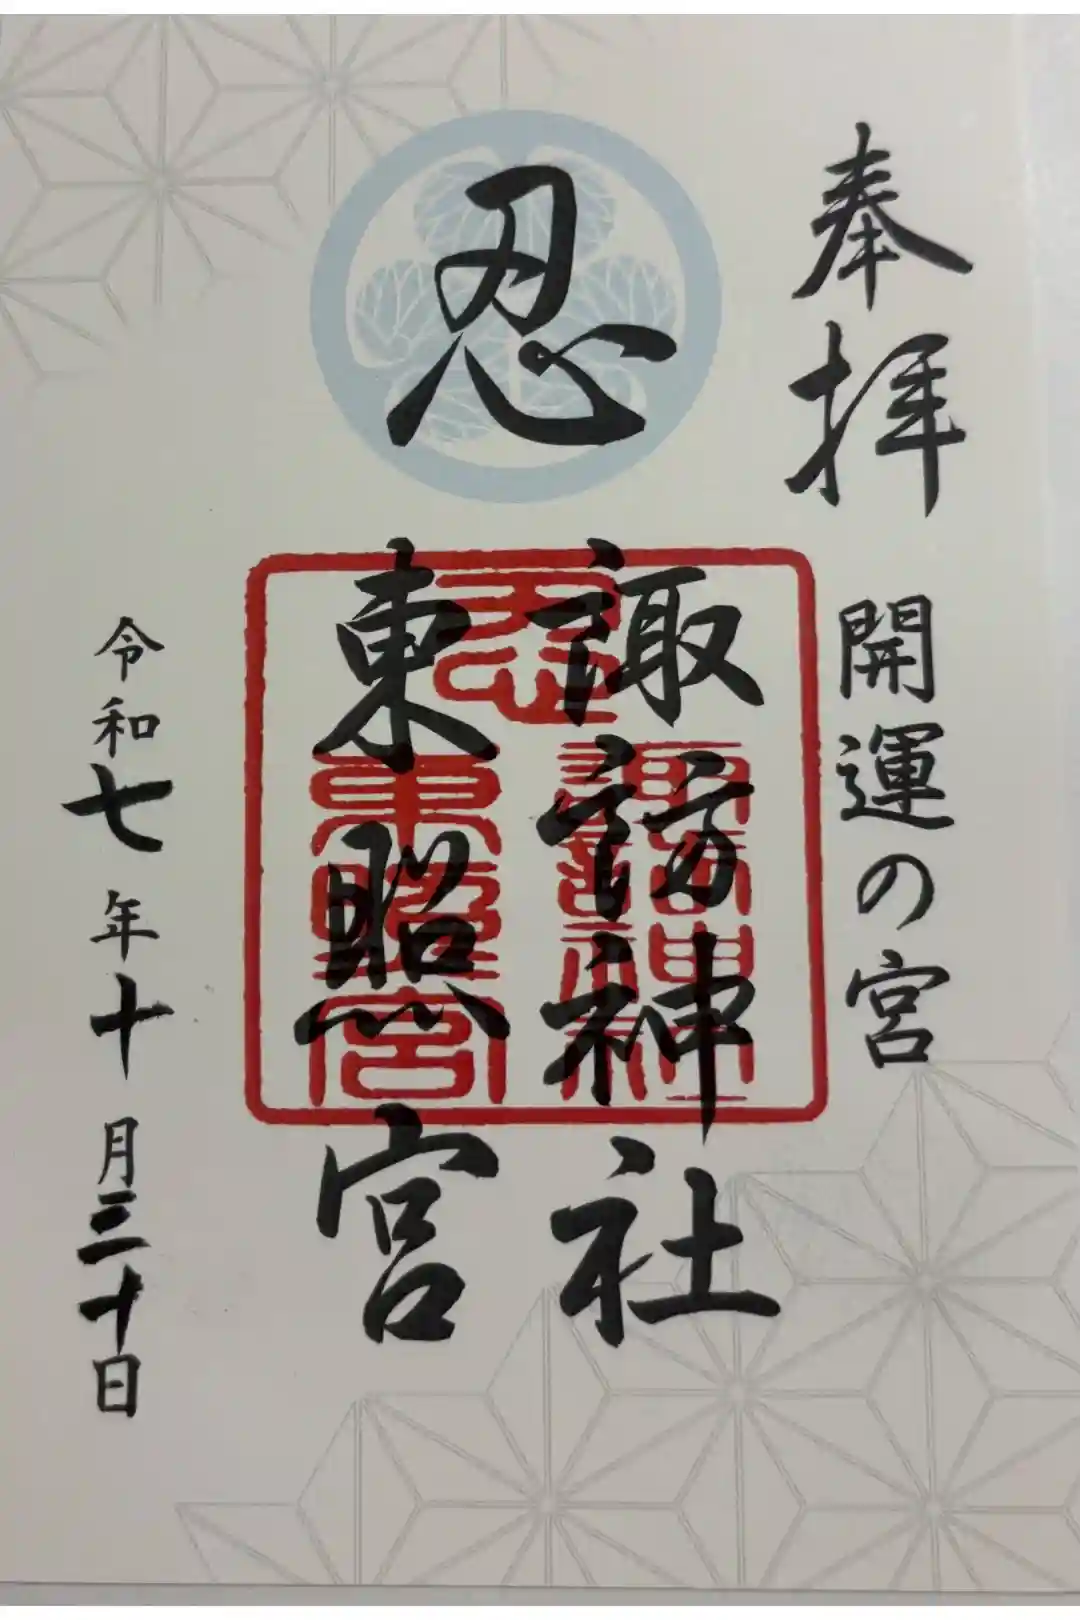 奉拝
開運の宮
忍
諏訪神社
東照宮
令和七年十月三十日
忍
諏訪神社
東照宮